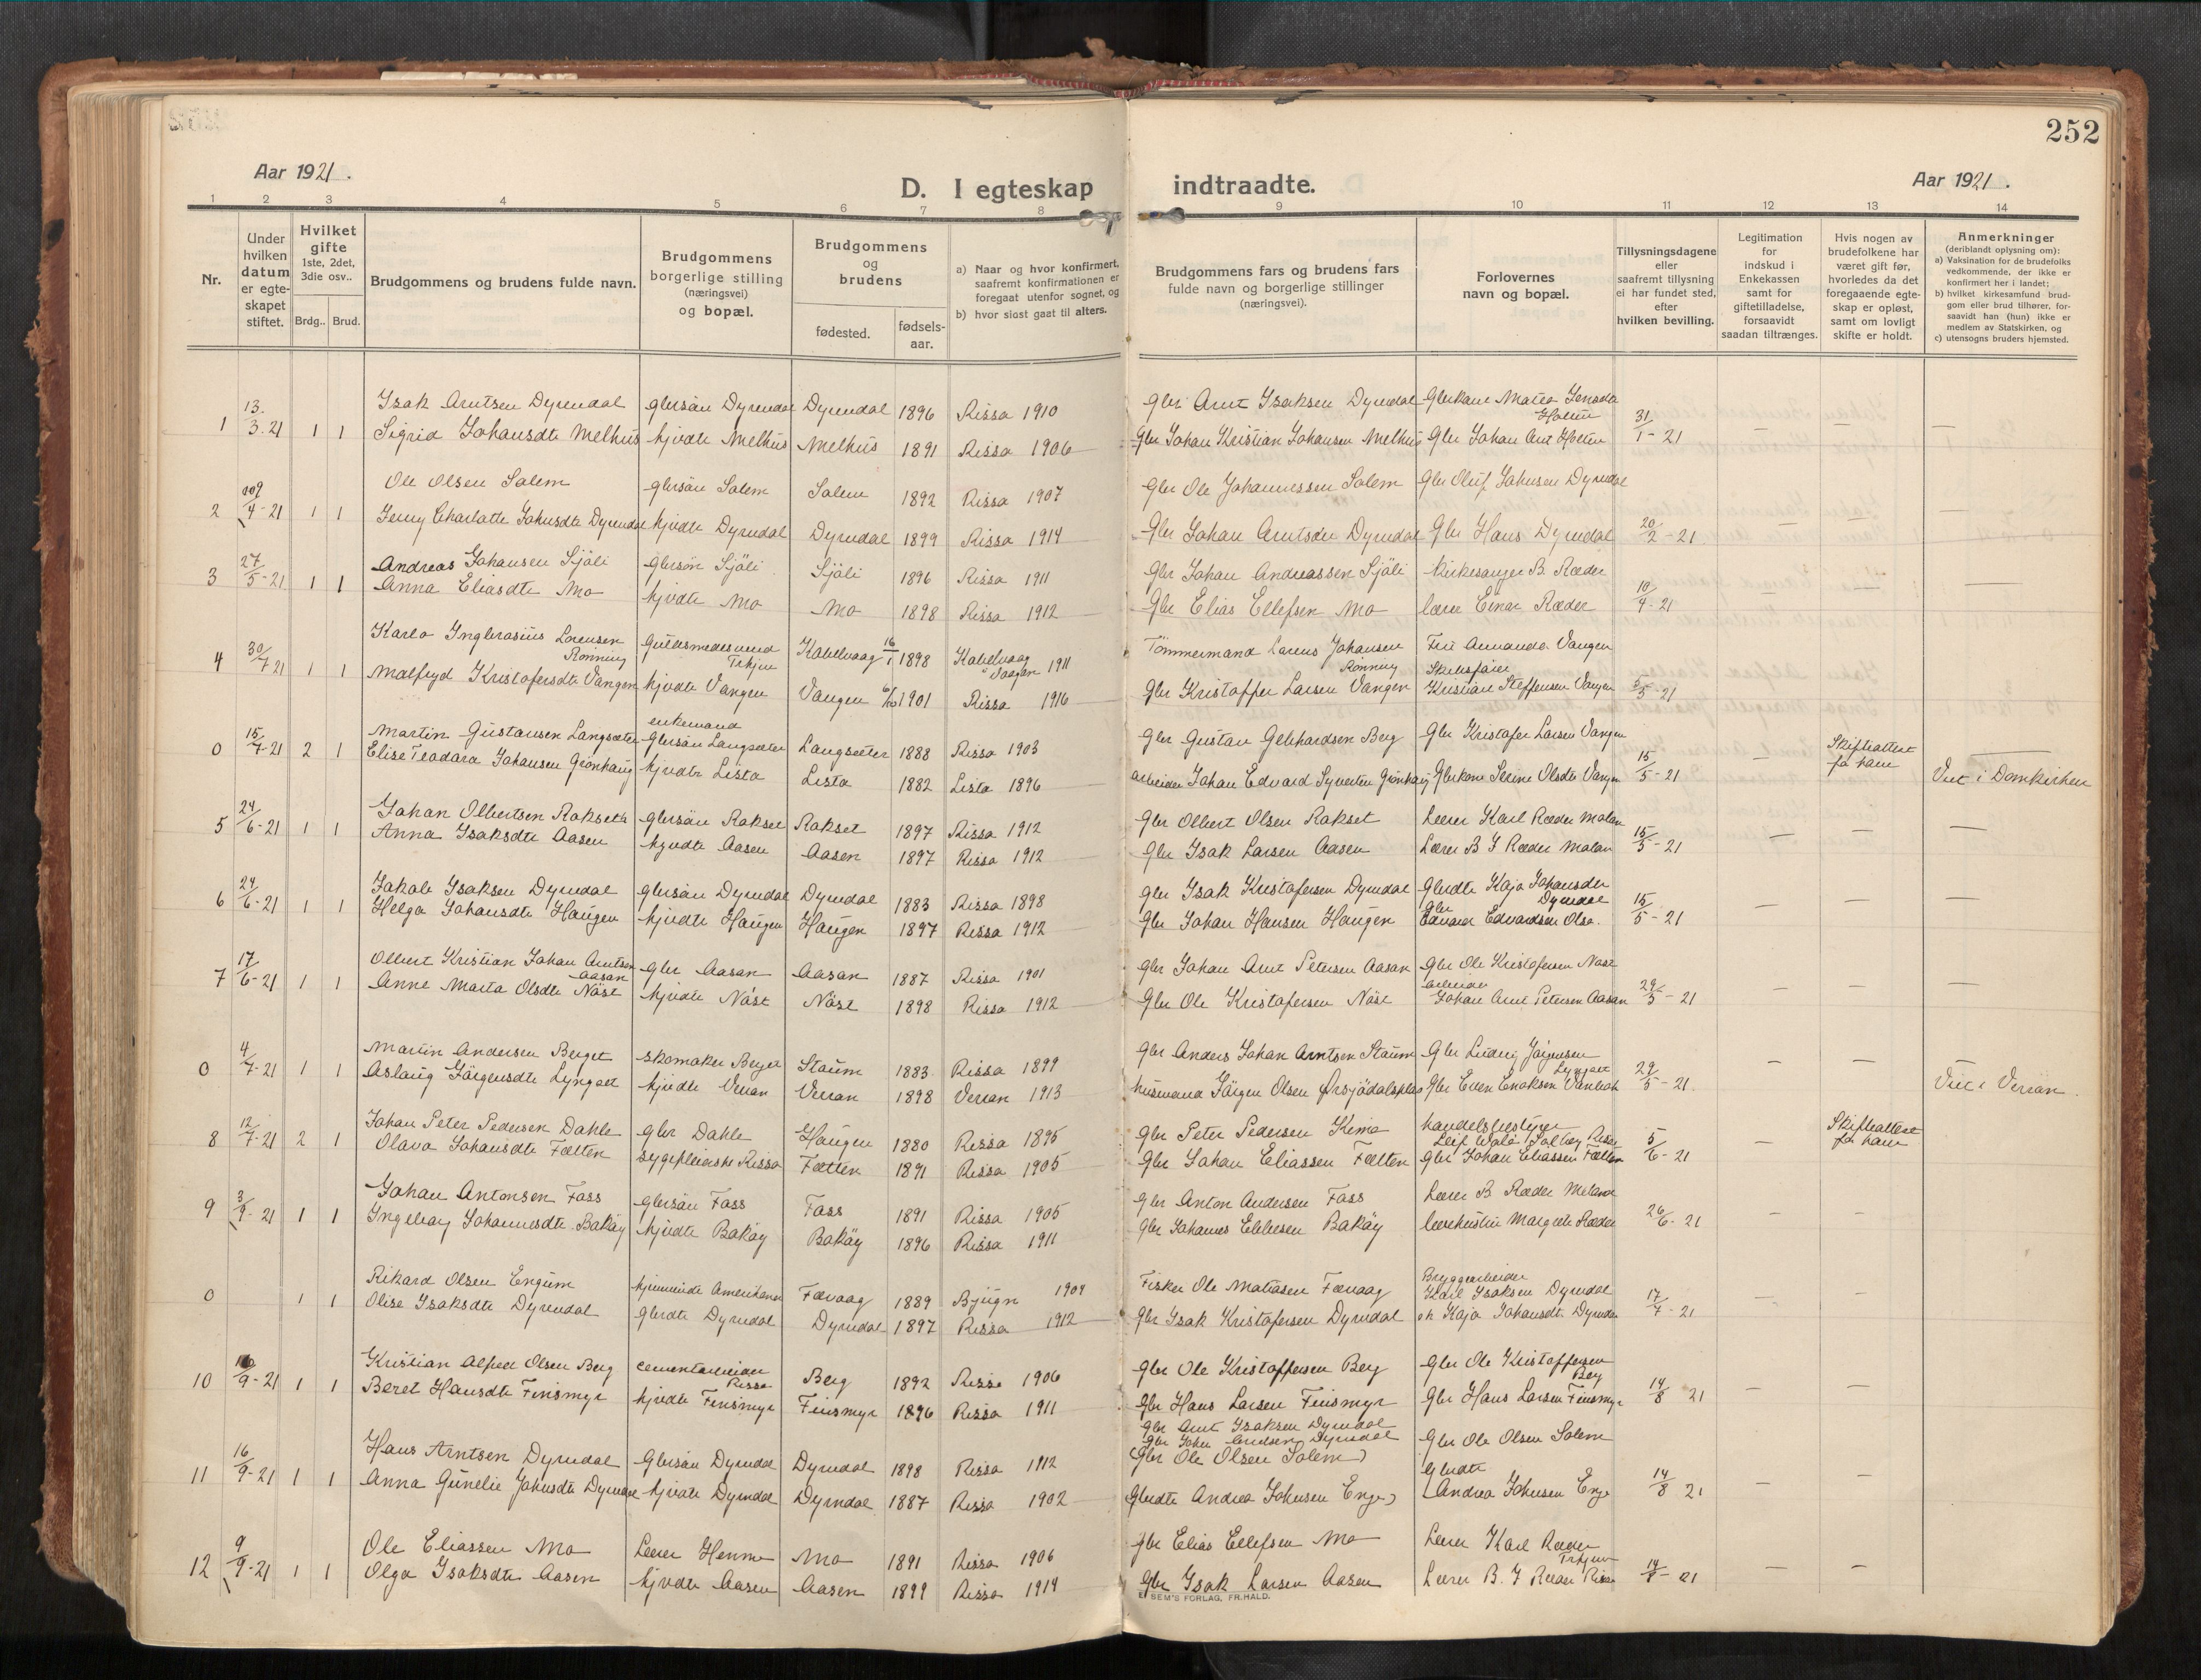 252
Aar 1921.
D. I egteskap indtraadte.
Aar 1921.
1 2 3 4 5 6 7 8 9 10 11 12 13 14
Nr.
Under hvilken datum er egte-skapet stiftet.
Hvilket gifte 1ste, 2det, 3die osv..
Brdg.. Brud.
Brudgommens og brudens fulde navn.
Brudgommens borgerlige stilling (næringsvei) og bopæl.
Brudgommens og brudens
fødested.
fødsels-aar.
a) Naar og hvor konfirmert, saafremt konfirmationen er foregaat utenfor sognet, og
b) hvor sidst gaat til alters.
Brudgommens fars og brudens fars fulde navn og borgerlige stillinger (næringsvei).
Forlovernes navn og bopæl.
Tillysningsdagene eller saafremt tillysning ei har fundet sted, efter hvilken bevilling.
Legitimation for indskud i Enkekassen samt for giftetilladelse, forsaavidt saadan tiltrænges.
Hvis nogen av brudefolkene har været gift før, hvorledes da det foregaaende egte-skap er opløst, samt om lovligt skifte er holdt.
Anmerkninger (deriblandt oplysning om):
a) Vaksination for de brudefolks vedkommende, der ikke er konfirmert her i landet;
b) hvilket kirkesamfund brud-gom eller brud tilhører, for-saavidt han (hun) ikke er medlem av Statskirken, og
c) utensogns bruders hjemsted.
Isak Arntsen Dyrndal glbrsøn Dyrndal Dyrndal 1896 Rissa 1910 Gbr Arnt Isaksen Dyrndal
1 13/3.21 1 1 Sigrid Johansdtr Melhus hjvdtr Melhus Melhus 1891 Rissa 1906 Gbr Johan Kristian Johansen Melhus Gbr Johan Arnt Holten 31/1-21 — — —
Ole Olsen Salem gbrsøn Salem Salem 1892 Rissa 1907 Gbr Ole Johannessen Salem Gbr Oluf Johnsen Dyrndal
2 /4-21 1 1 Jenny Charlotte Johnsdtr Dyrndal hjvdtr Dyrndal Dyrndal 1899 Rissa 1914 Gbr Johan Arntsen Dyrndal Gbr Hans Dyrndal 20/2-21 — — —
Andreas Johansen Sjöli gbrsøn Sjöli Sjöli 1896 Rissa 1911 Gbr Johan Andreassen Sjöli Kirkesanger B. Ræder
3 27/5-21 1 1 Anna Eliasdtr Mo hjvdtr Mo Mo 1898 Rissa 1912 Gbr Elias Ellefsen Mo lærer Einar Ræder 10/4-21 — — —
Karlo Lorensen Rønning Guldsmedsvend Trhjem Kabelvaag 16/1 1898 Kabelvaag Vaagan 1911 Tömmermand Lorens Johansen Rønning Vangen
4 30/7 21 1 1 Malfryd Kristofersdtr Vangen hjvdtr Vangen Vangen 1901 Rissa 1916 Gbr Kristoffer Larsen Vangen Kristian Steffensen Vangen /5-21
Martin Gustavsen Langsæter enkemand gbrsøn Langsæter Langsæter 1888 Rissa 1903 Gbr Gustav Gebhardsen Berg Gbr Kristofer Larsen Vangen Skifteattest fra ham
0 15/7-21 2 1 Elise Teadora Johansen Grönhaug hjvdtr Lista Lista 1882 Lista 1896 arbeider Johan Edvard Syvertsen Grönhaug Gbrkone Serine Olsdtr Vangen 15/5-21 — Viet i Domkirken
Johan Olbertsen Rakset gbrsøn Rakset Rakset 1897 Rissa 1912 Gbr Olbert Olsen Rakset Lærer Karl Ræder
5 24/6-21 1 1 Anna Isaksdtr Aasen hjvdtr Aasen Aasen 1897 Rissa 1912 Gbr Isak Larsen Aasen Lærer B J Ræder 15/5-21 — — —
Jakob Isaksen Dyrndal gbrsøn Dyrndal Dyrndal 1883 Rissa 1898 Gbr Isak Kristofersen Dyrndal Gbrdtr Kaja Johansdtr Dyrndal
6 24/6-21 1 1 Helga Johansdtr Haugen hjvdtr Haugen Haugen 1897 Rissa 1912 Gbr Johan Hansen Haugen Gbr Edvard Edvardsen Olsø. 15/5-21 — — —
Olbert Kristian Johan Arntsen Aasan Gbr Aasan Aasan 1887 Rissa 1901 Gbr Johan Arnt Petersen Aasan Gbr Ole Kristofersen Näst
7 17/6-21 1 1 Anne Marta Olsdtr Näst hjvdtr Näst Näst 1898 Rissa 1912 Gbr Ole Kristofersen Näst arbeider Johan Arnt Petersen Aasan 29/5-21 — — —
Martin Andersen Berget skomaker Berget Staum 1883 Rissa 1899 Gbr Anders Johan Arntsen Staum Gbr Ludvig Jörgensen
0 4/7-21 1 1 Aslaug Jörgensdtr Lyngaet hjvdtr Verran Verran 1898 Verran 1913 husmand Jörgen Olsen 29/5-21 — — Viet i Verran
Johan Peter Pedersen Dahle gbr Dahle Haugen 1880 Rissa 1895 Gbr Peter Pedersen Kimo handelsbestyrer Skifteattest fra ham
8 12/7-21 2 1 Olava Johansdtr Fætten sygepleierske Rissa Fætten 1891 Rissa 1905 Gbr Johan Eliassen Fætten gbr Johan Eliassen Fætten 5/6-21 —
Johan Antonsen Fass gbrsøn Fass Fass 1891 Rissa 1905 Gbr Anton Andersen Fass Lærer B. Ræder
9 3/9-21 1 1 Ingeborg Johannesdtr Bakøy hjvdtr Bakøy Bakøy 1896 Rissa 1911 Gbr Johannes Ebbesen Bakøy Margrete Ræder 26/6-21 — —
Rikard Olsen Engum hjemvendt Amerikaner Fævaag 1889 Bjugn 1904 Fisker Ole Matiasen Fævaag Bryggearbeider Karl Isaksen Dyrndal
0 1 1 Olise Isaksdtr Dyrndal Gbrdtr Dyrndal Dyrndal 1897 Rissa 1912 Gbr Isak Kristofersen Dyrndal Kaja Johansdtr Dyrndal 17/7-21 — —
Kristian Alfred Olsen Berg cementarbeider Rissa Berg 1892 Rissa 1906 Gbr Ole Kristoffersen Berg Gbr Ole Kristoffersen Berg
10 /9-21 1 1 Beret Hansdtr Finsmyr hjvdtr Finsmyr Finsmyr 1896 Rissa 1911 Gbr Hans Larsen Finsmyr Gbr Hans Larsen Finsmyr 14/8 21 — —
Gbr Arnt Isaksen Dyrndal
Gbr John Arntsen Dyrndal
Hans Arntsen Dyrndal Gbrsøn Dyrndal Dyrndal 1898 Rissa 1912 (Gbr Ole Olsen Salem) Gbr Ole Olsen Salem
11 16/9-21 1 1 Anna Gunelie Johnsdtr Dyrndal hjvdtr Dyrndal Dyrndal 1887 Rissa 1902 Gbrdtr Andrea Johnsen Enge) Gbrdtr Andrea Johnsen Enge 14/8 21 — —
Ole Eliassen Mo Lærer Mo 1891 Rissa 1906 Gbr Elias Ellefsen Mo Lærer Karl Ræder Trhjem
12 9/9-21 1 1 Olga Isaksdtr Aasen hjvdtr Aasen Aasen 1899 Rissa 1914 Gbr Isak Larsen Aasen Lærer B. J Ræder Rissa 14/8-21 — —
E. SEM'S FORLAG, FR.HALD.